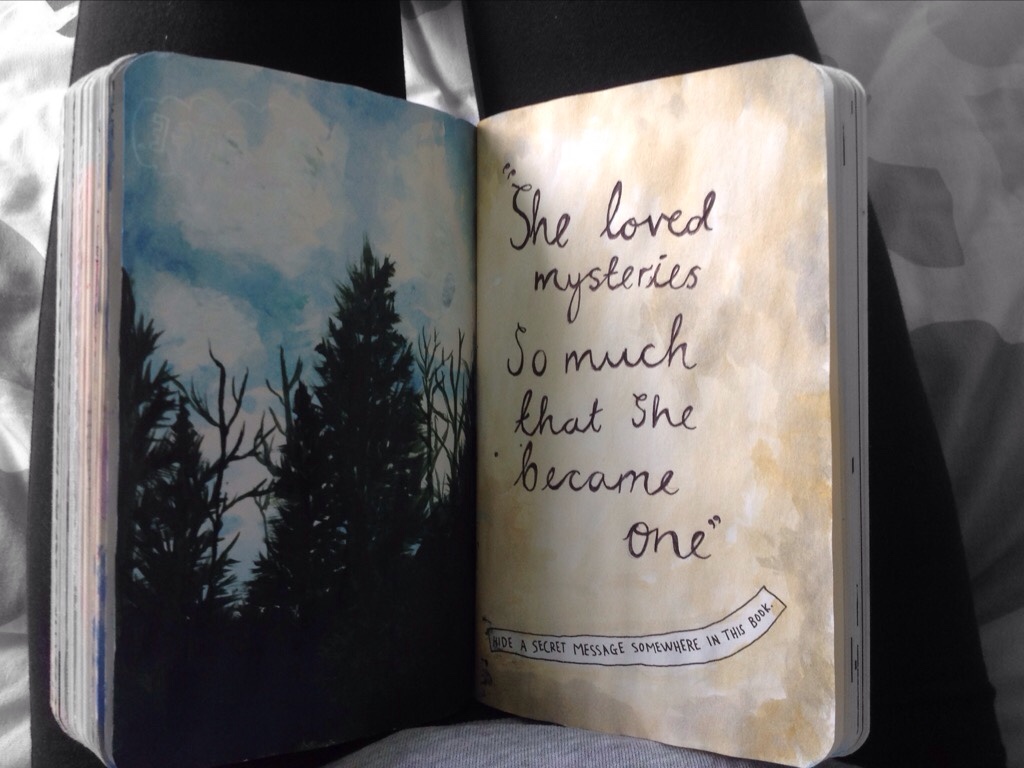 "She loved
mysteries
So much
that She
became
one"
HIDE A SECRET MESSAGE SOMEWHERE IN THIS BOOK.